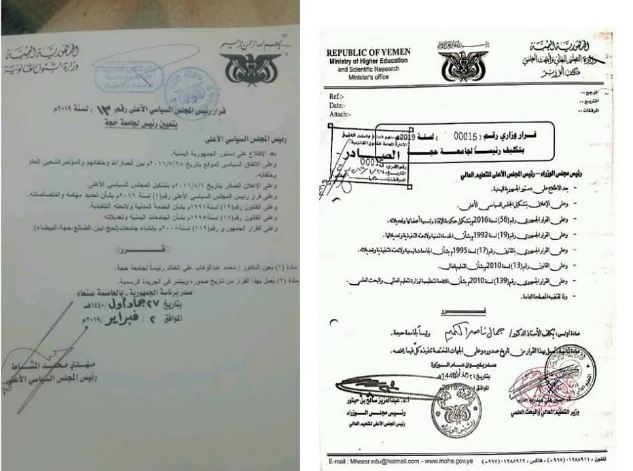 الجمهورية اليمنية
وزارة الشئون القانونية
بسم الله الرحمن الرحيم
قرار رئيس المجلس السياسي الأعلى رقم (١٣) لسنة ٢٠١٩م
بتعيين رئيس لجامعة حجة
رئيس المجلس السياسي الأعلى:
بعد الإطلاع على دستور الجمهورية اليمنية.
وعلى الاتفاق السياسي الموقع بتاريخ ٢٠١٦/٧/٢٨م بين أنصار الله وحلفائهم والمؤتمر الشعبي العام
وحلفائه.
وعلى الإعلان الصادر بتاريخ ٢٠١٦/٨/٦م بتشكيل المجلس السياسي الأعلى.
وعلى قرار رئيس المجلس السياسي الأعلى رقم (١) لسنة ٢٠١٦م بشأن تحديد مهامه واختصاصاته.
وعلى القانون رقم (١٩) لسنة ١٩٩١م بشأن الخدمة المدنية ولائحته التنفيذية.
وعلى القانون رقم (١٧) لسنة ١٩٩٥م بشأن الجامعات اليمنية وتعديلاته.
وعلى القرار الجمهوري رقم (١١٩) لسنة ٢٠٠٨م بإنشاء جامعات (لحج، أبين، الضالع، حجة، البيضاء).
// قـــرر //
مادة (١) يعين الدكتور / محمد عبدالوهاب علي الخالد رئيساً لجامعة حجة.
مادة (٢) يعمل بهذا القرار من تاريخ صدوره وينشر في الجريدة الرسمية.
صدر برئاسة الجمهورية - بالعاصمة صنعاء
بتاريخ ٢٧ جماد أول /١٤٤٠هـ
الموافق ٢ / فبراير /٢٠١٩م
مهدي محمد المشاط
رئيس المجلس السياسي الأعلى
REPUBLIC OF YEMEN
Ministry of Higher Education
and Scientific Research
Minister's office
الجمهورية اليمنية
وزارة التعليم العالي والبحث العلمي
مكتب الوزير
Ref:-
Date:-
Attach:-
المرجع
التاريخ
المرفقات
قرار وزاري رقم (00015) لسنة 2019م
بتكليف رئيساً لجامعة حجة
الصادر
00015
رئيس مجلس الوزراء - رئيس المجلس الأعلى للتعليم العالي
بعد الاطلاع على دستور الجمهورية اليمنية.
وعلى الإعلان بتشكيل المجلس السياسي الأعلى.
وعلى القرار الجمهوري رقم (56) لسنة 2016م بتشكيل حكومة الإنقاذ وتسمية أعضائها وتعديلاته.
وعلى القرار الجمهوري رقم (19) لسنة 1992م بشأن الخدمة المدنية ولائحته التنفيذية وتعديلاتها.
وعلى القرار الجمهوري بالقانون رقم (17) لسنة 1995م بشأن الجامعات اليمنية ولائحته التنفيذية وتعديلاته.
وعلى القانون رقم (13) لسنة 2010م بشأن التعليم العالي.
وعلى القرار الجمهوري رقم (139) لسنة 2010م بشأن اللائحة التنظيمية لوزارة التعليم العالي والبحث العلمي.
وبما تقتضيه المصلحة العامة.
قـــرر
مادة أولى: يكلف الأستاذ الدكتور/ جمال ناصر الكميم رئيساً لجامعة حجة.
صدر بديوان عام الوزارة
أ.د. عبدالعزيز صالح بن حبتور
رئيس مجلس الوزراء
رئيس المجلس الأعلى للتعليم العالي
وزير التعليم العالي والبحث العلمي
E-mail : Mheesr.edu@hotmail.com - www.mohe.gov.ye